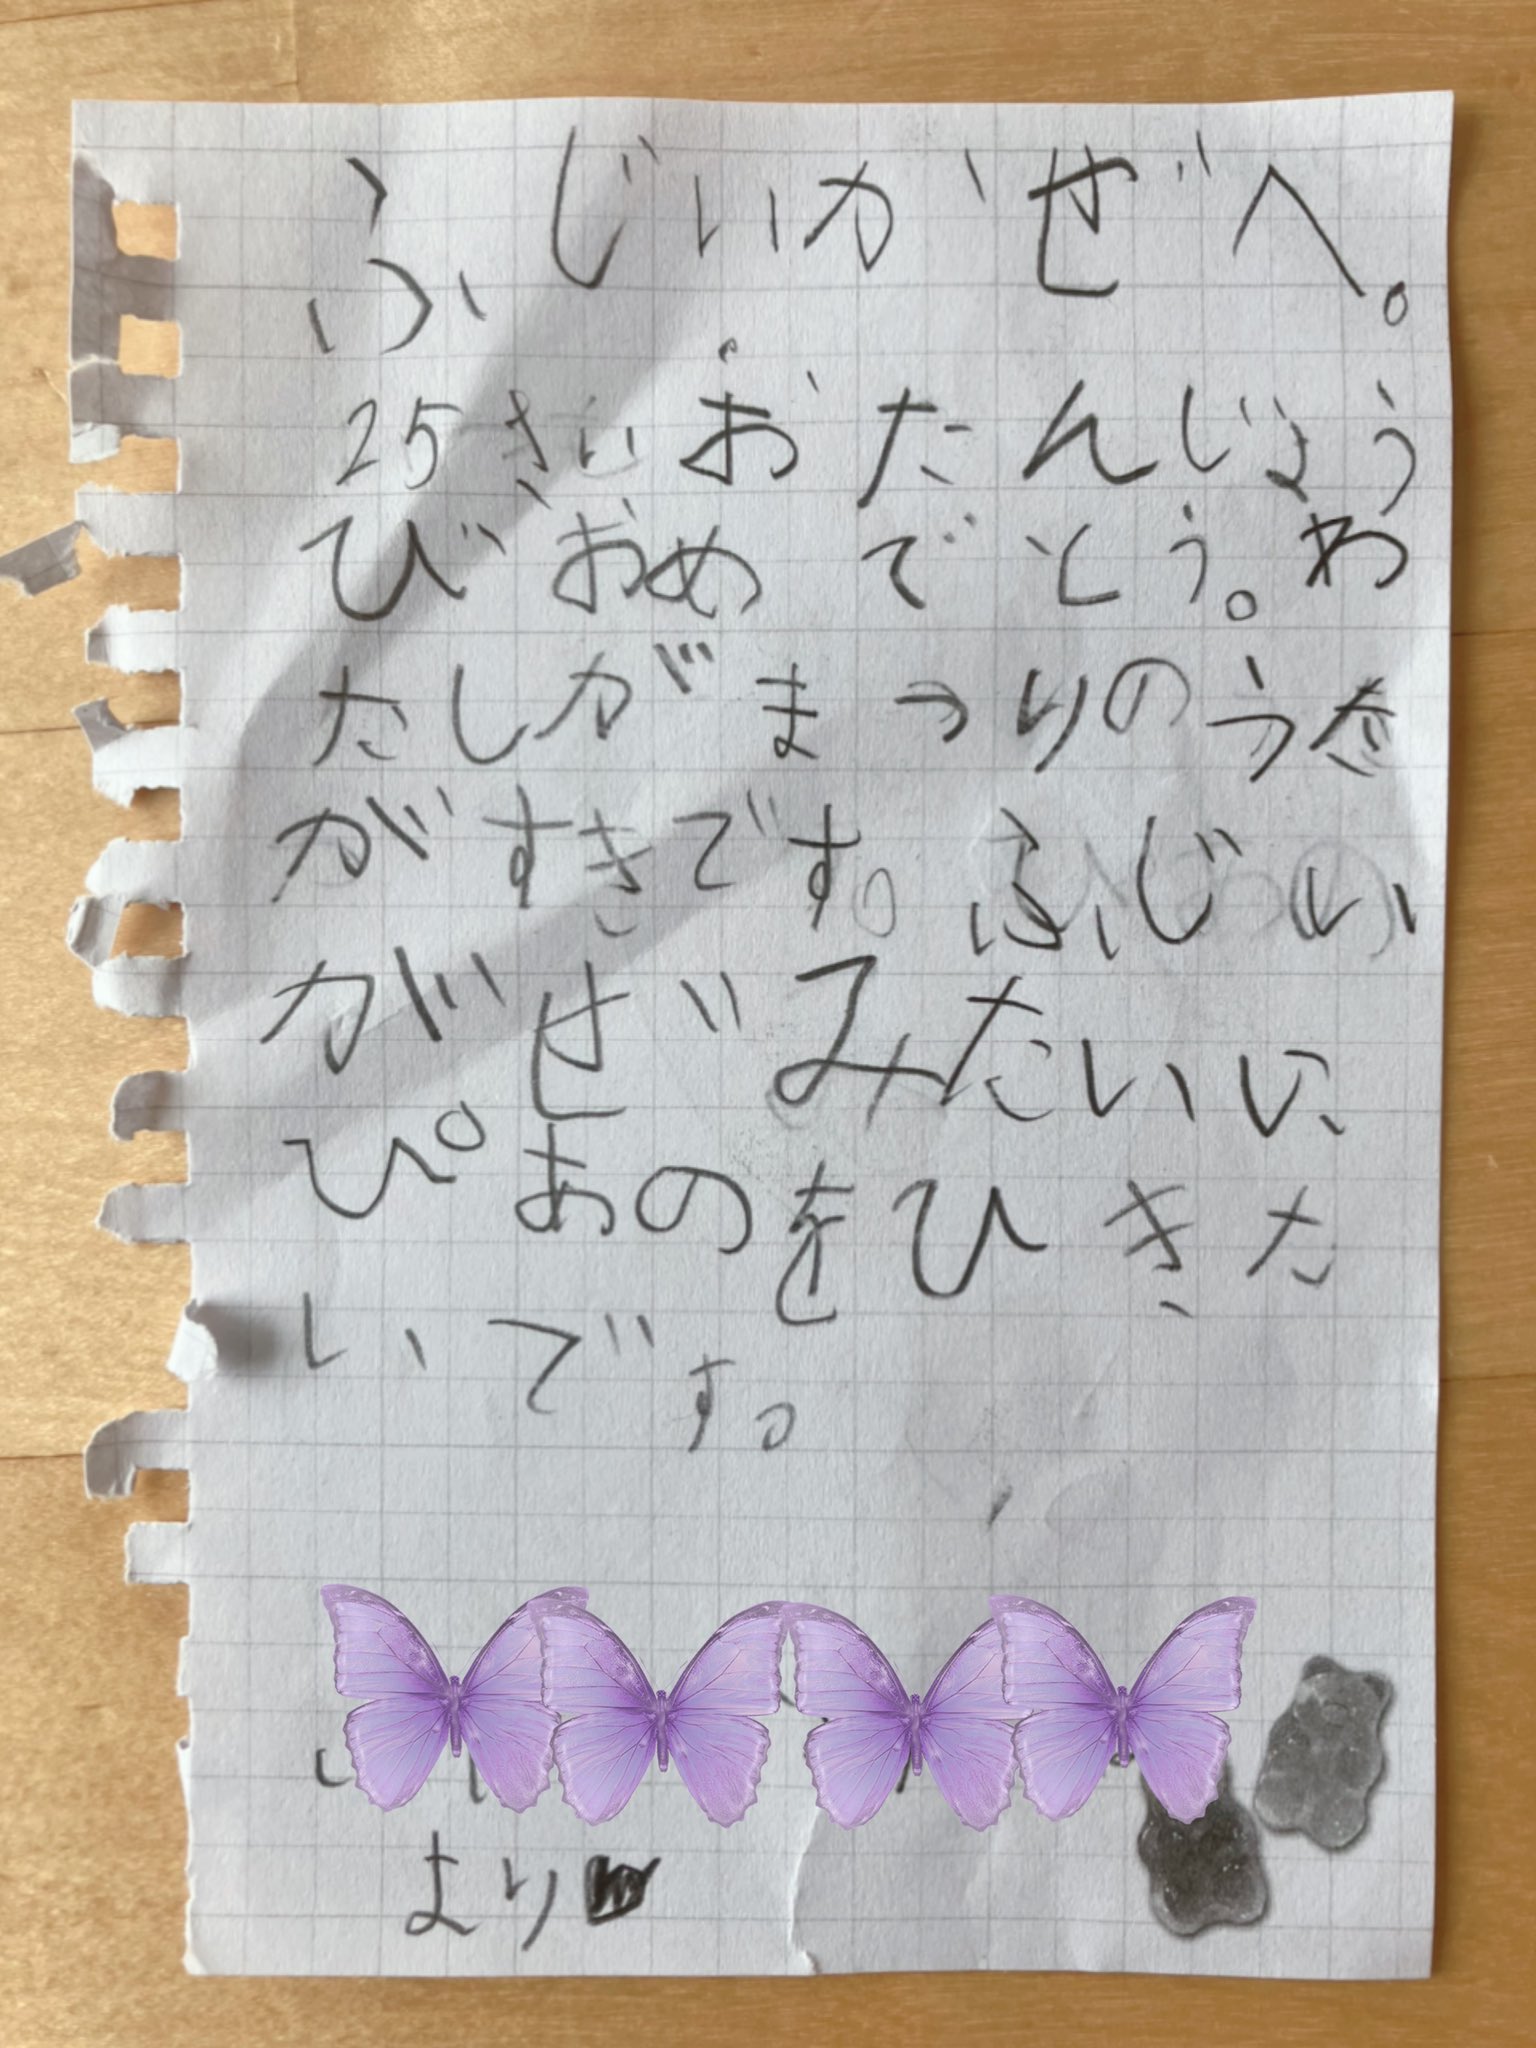 ふじいかぜへ。
25さいおたんじょう
びおめでとう。わ
たしがまつりのうた
がすきです。ふじい
がぜみたいに
ぴあのをひきた
いです。
より